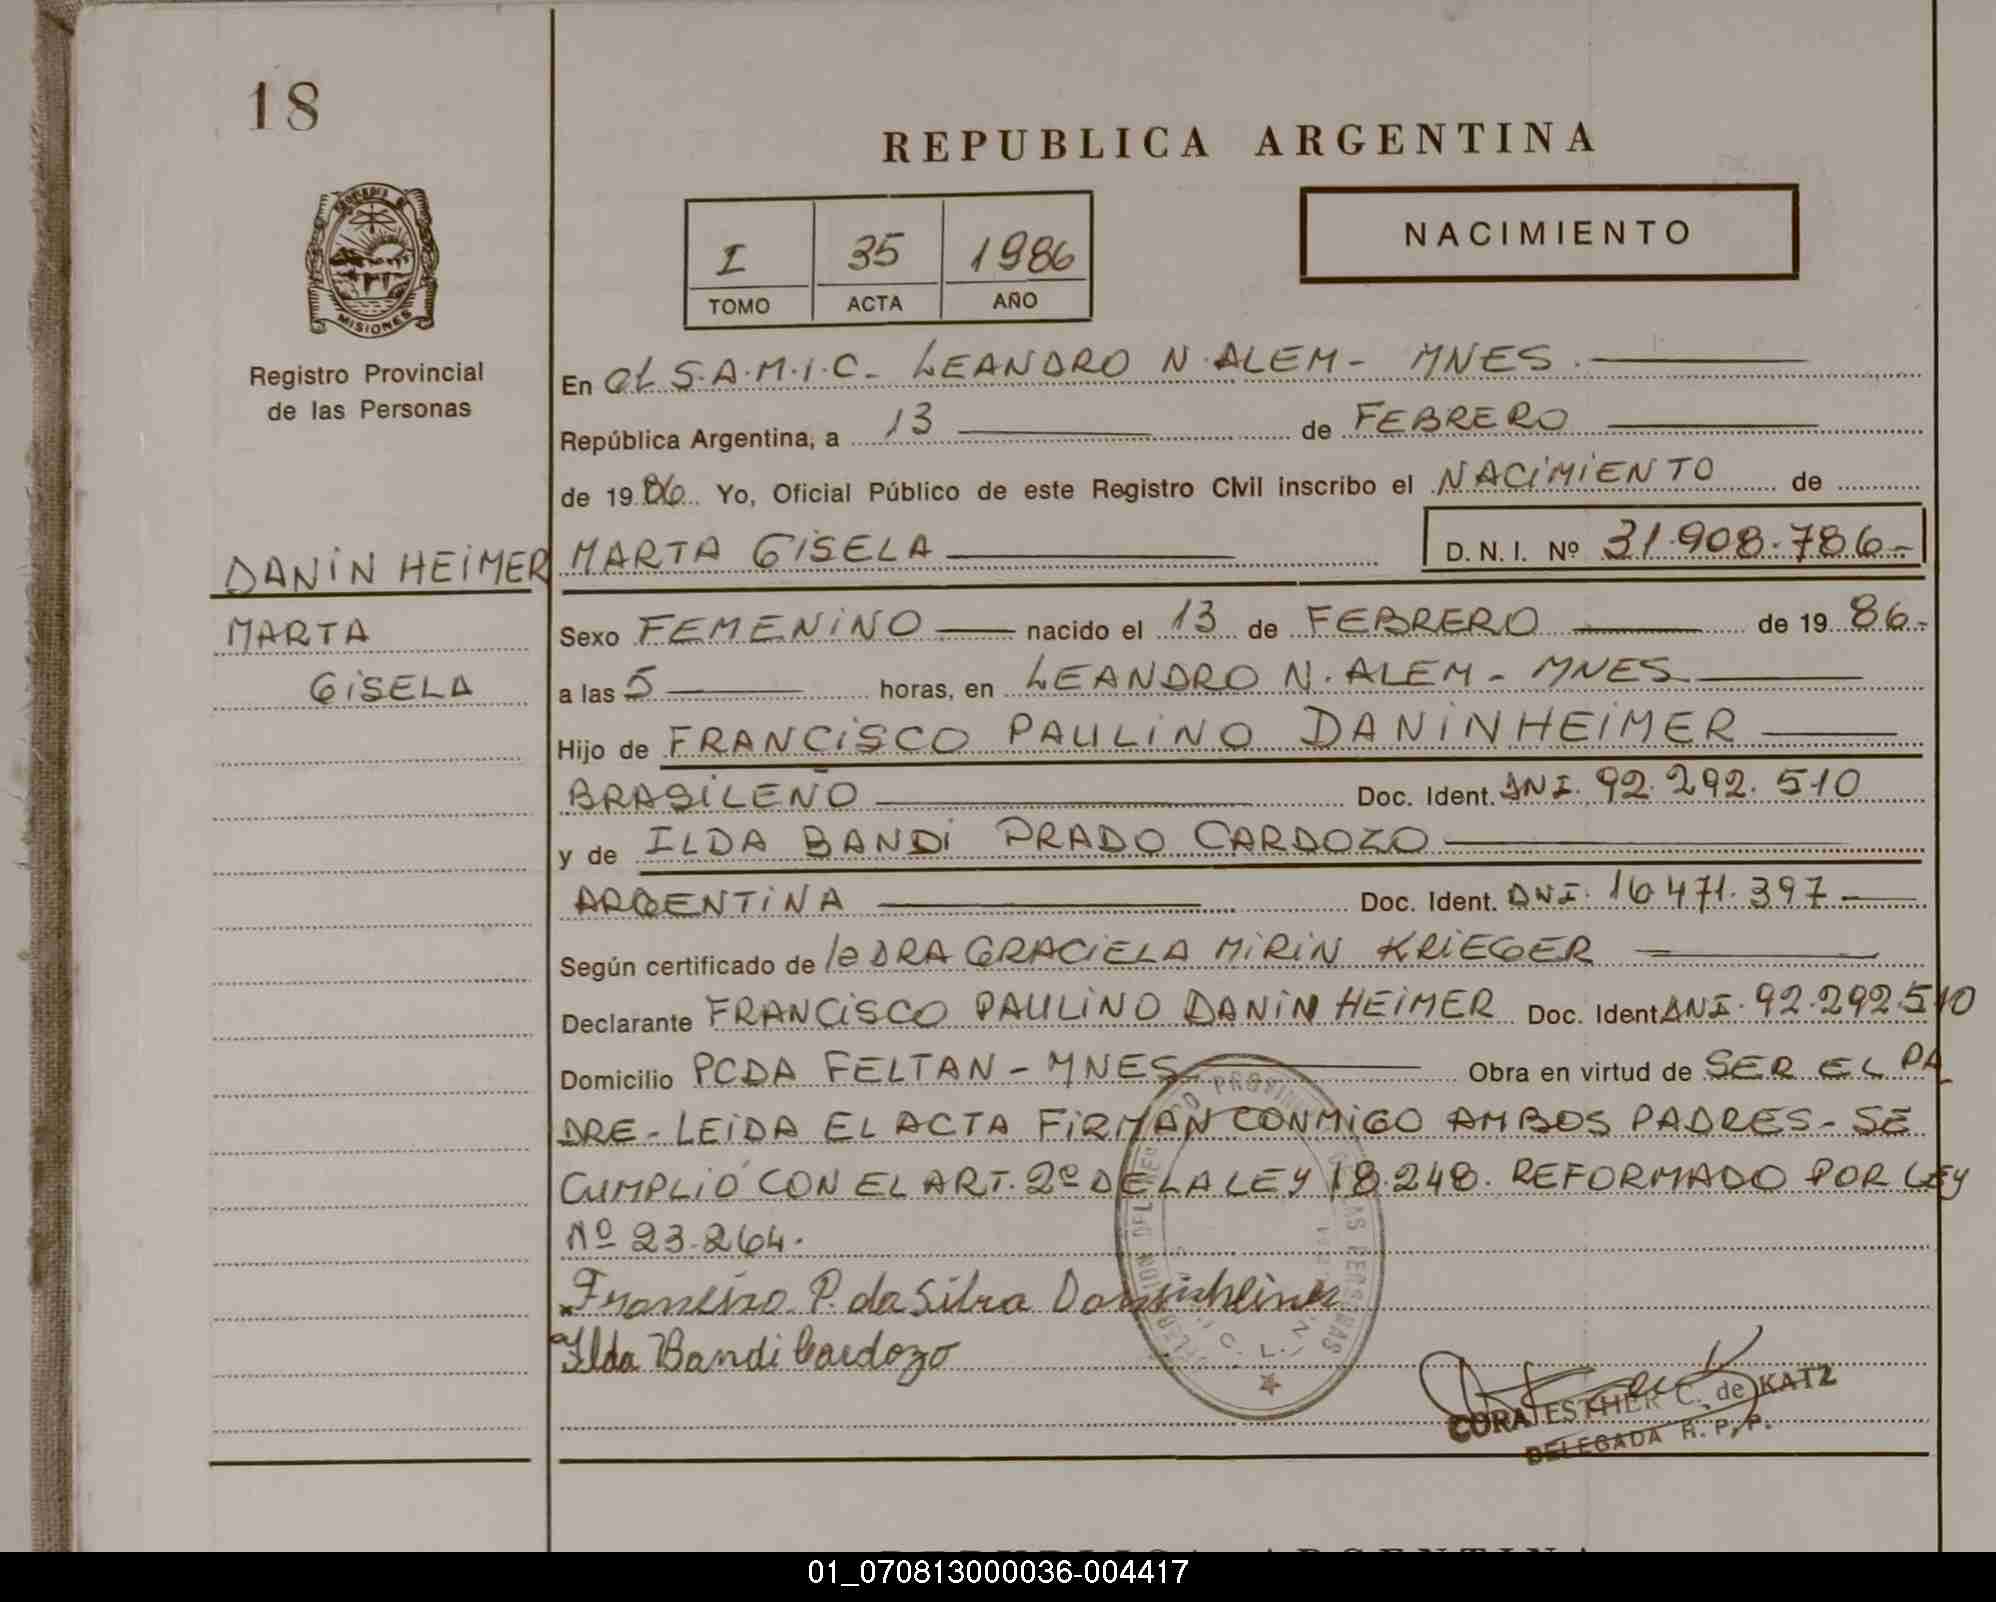 18
REPUBLICA ARGENTINA
I 35 1986
TOMO ACTA AÑO
NACIMIENTO
MISIONES
Registro Provincial
de las Personas
En el S.A.M.I.C- LEANDRO N. ALEM- MNES.
República Argentina, a 13 de FEBRERO
de 1986 Yo, Oficial Público de este Registro Civil inscribo el NACIMIENTO de
MARTA GISELA D. N. I. Nº 31.908.786-
DANINHEIMER
MARTA
GISELA
Sexo FEMENINO nacido el 13 de FEBRERO de 1986-
a las 5 horas, en LEANDRO N. ALEM - MNES
Hijo de FRANCISCO PAULINO DANINHEIMER
BRASILEÑO Doc. Ident. DNI. 92.292.510
y de ILDA BANDI PRADO CARDOZO
ARGENTINA Doc. Ident. DNI. 16.471.397
Según certificado de la DRA GRACIELA MIRIN KRIEGER
Declarante FRANCISCO PAULINO DANINHEIMER Doc. Ident DNI. 92.292.510
Domicilio PCDA FELTAN - MNES Obra en virtud de SER EL PA
DRE - LEIDA EL ACTA FIRMAN CONMIGO AMBOS PADRES - SE
CUMPLIÓ CON EL ART. 2º DE LA LEY 18.248. REFORMADO POR LEY
Nº 23.264.
Francisco P. da Silva Daninheimer
Ilda Bandi Cardozo
CORA ESTHER C. de KATZ
DELEGADA R. P. P.
01_070813000036-004417